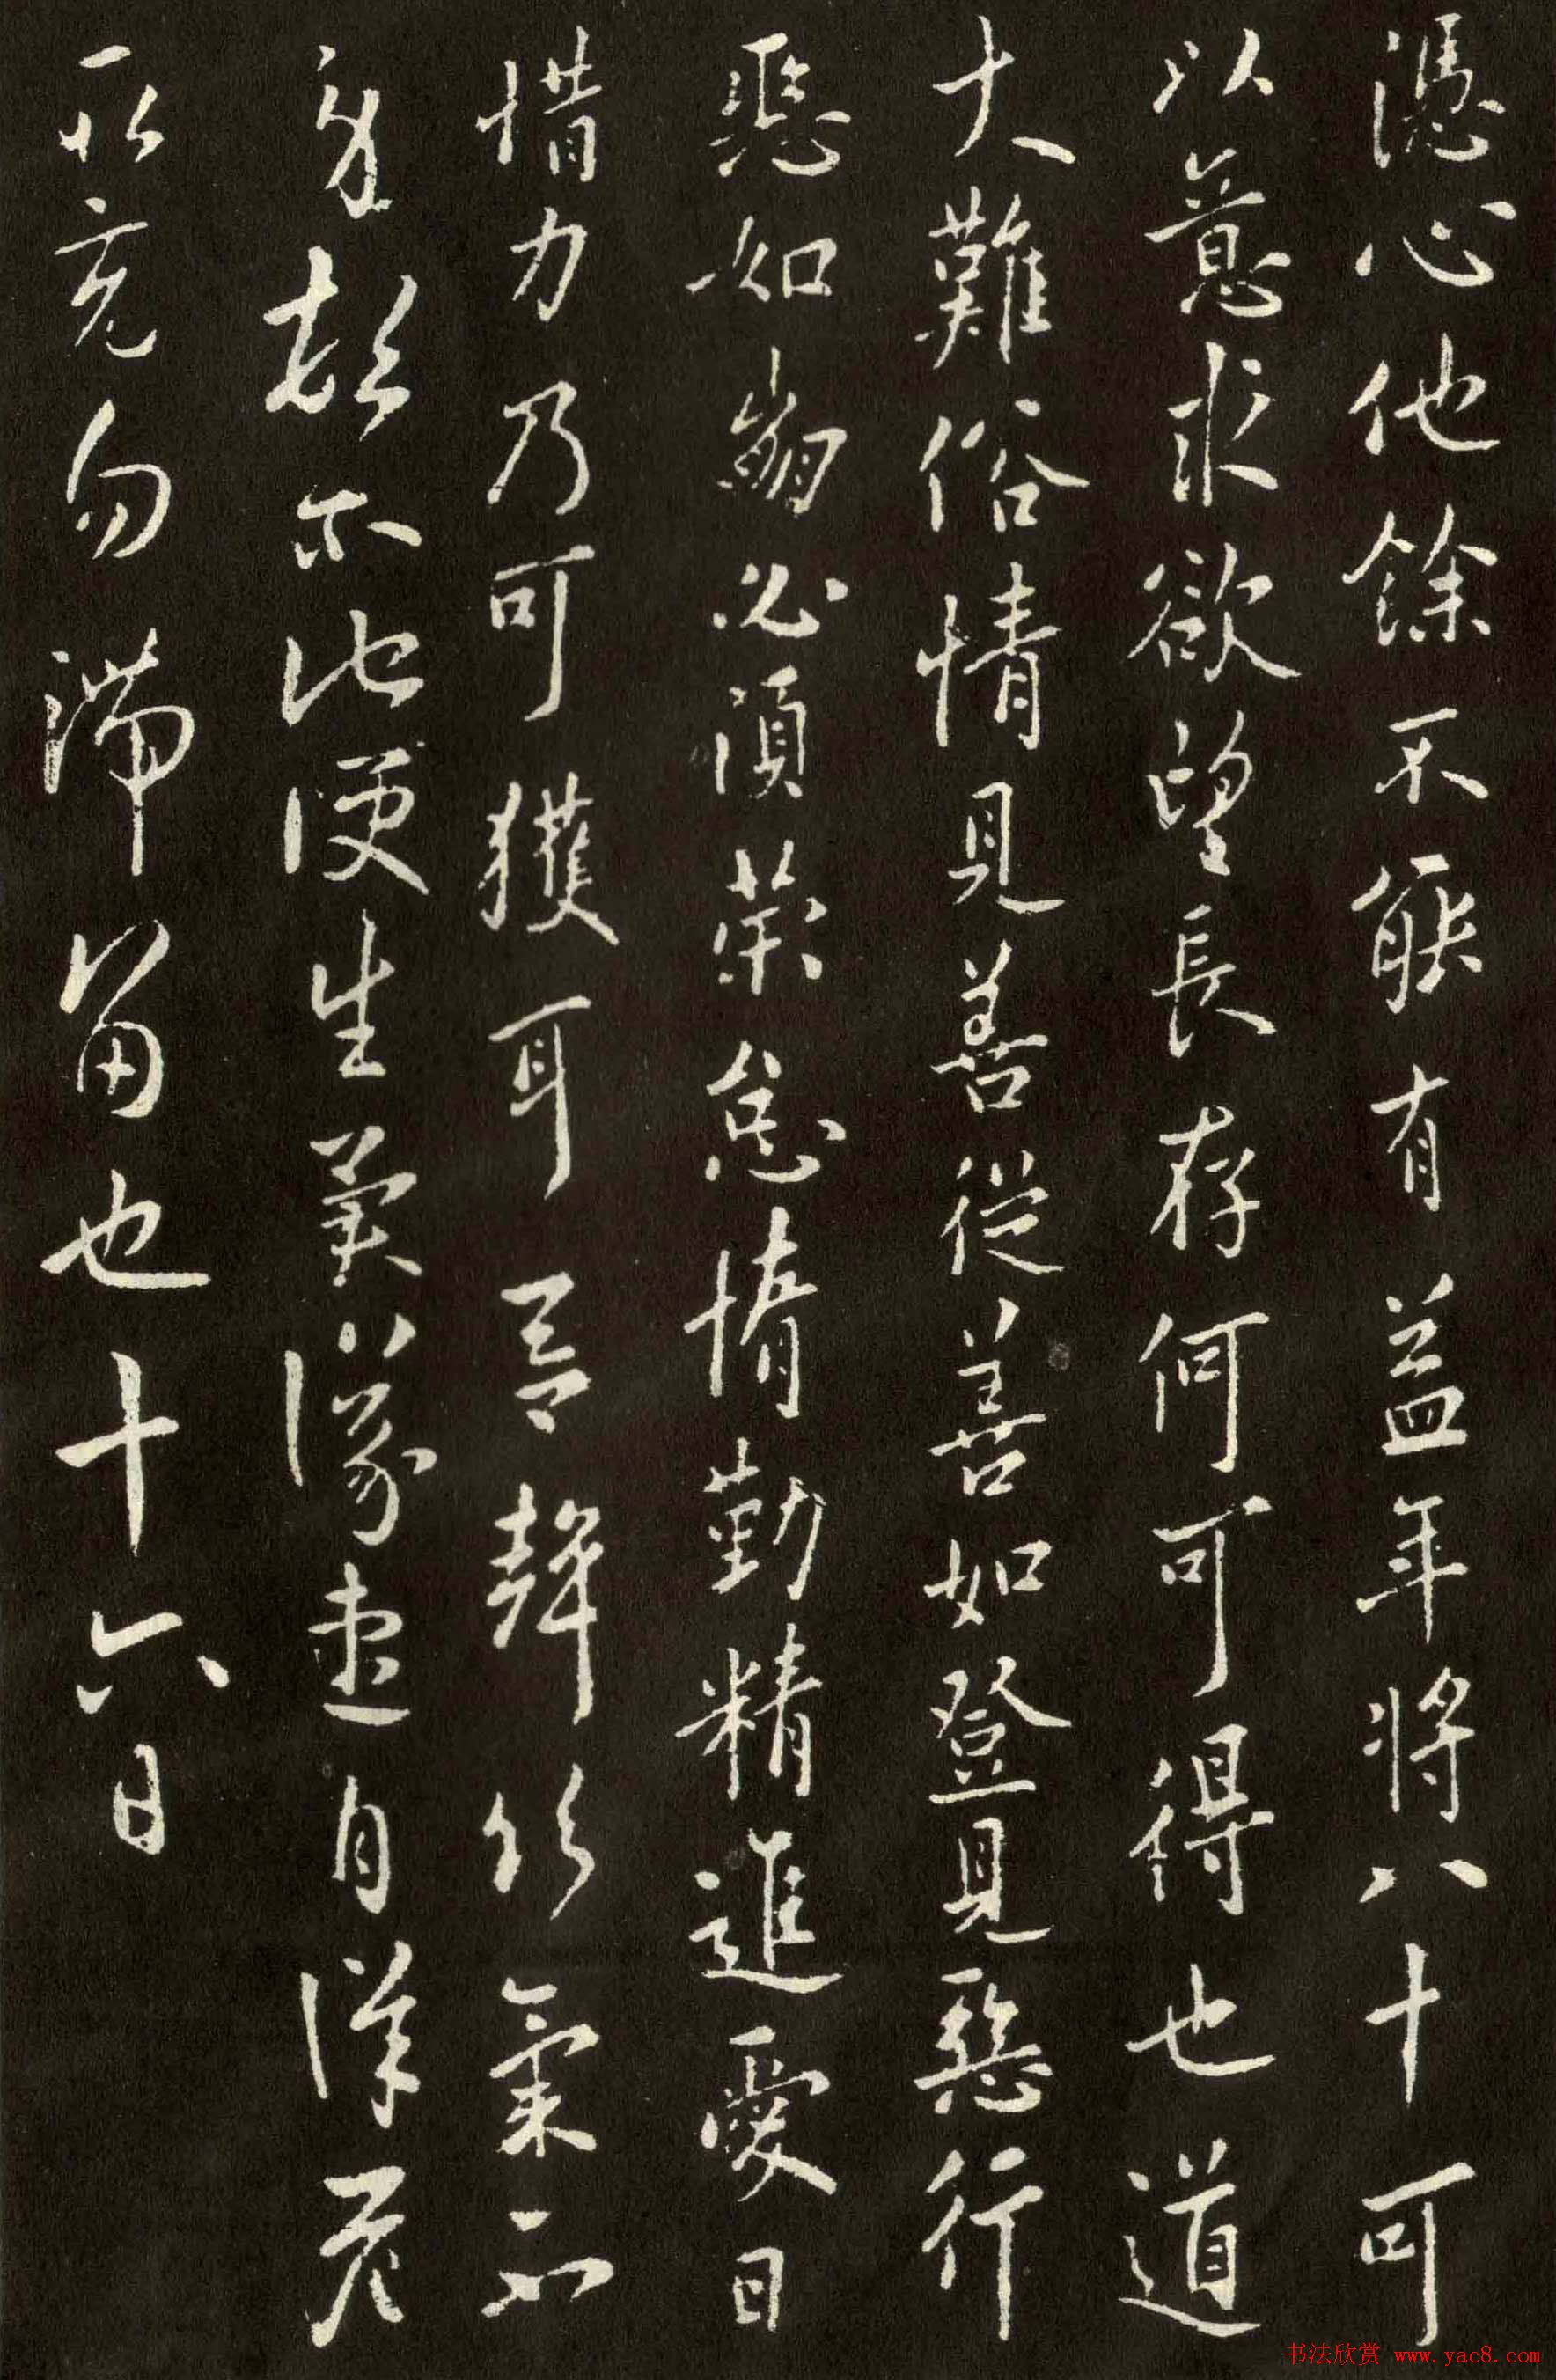 憑心他餘不能有益年將八十可
以意求欲望長存何可可得也道
大難俗情見善從善如登見惡行
惡如崩必須策怠惰勤精進愛日
惜力乃可獲耳聲氣不
便生自
勿滯留也十六日
书法欣赏 www.yac8.com